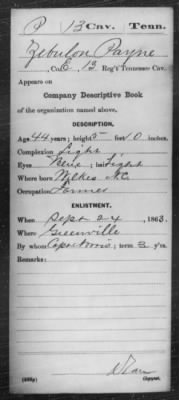 P 13 Cav. Tenn.
Zebulon Payne
Co. E, 13 Reg't Tennessee Cav.
Appears on
Company Descriptive Book
of the organization named above.
DESCRIPTION.
Age 44 years; height 5 feet 10 inches.
Complexion Light
Eyes Blue; hair Light
Where born Wilkes N.C.
Occupation Farmer
ENLISTMENT.
When Sept 24, 1863.
Where Greenville
By whom Capt; term 3 y'rs.
Remarks:
Copyist.